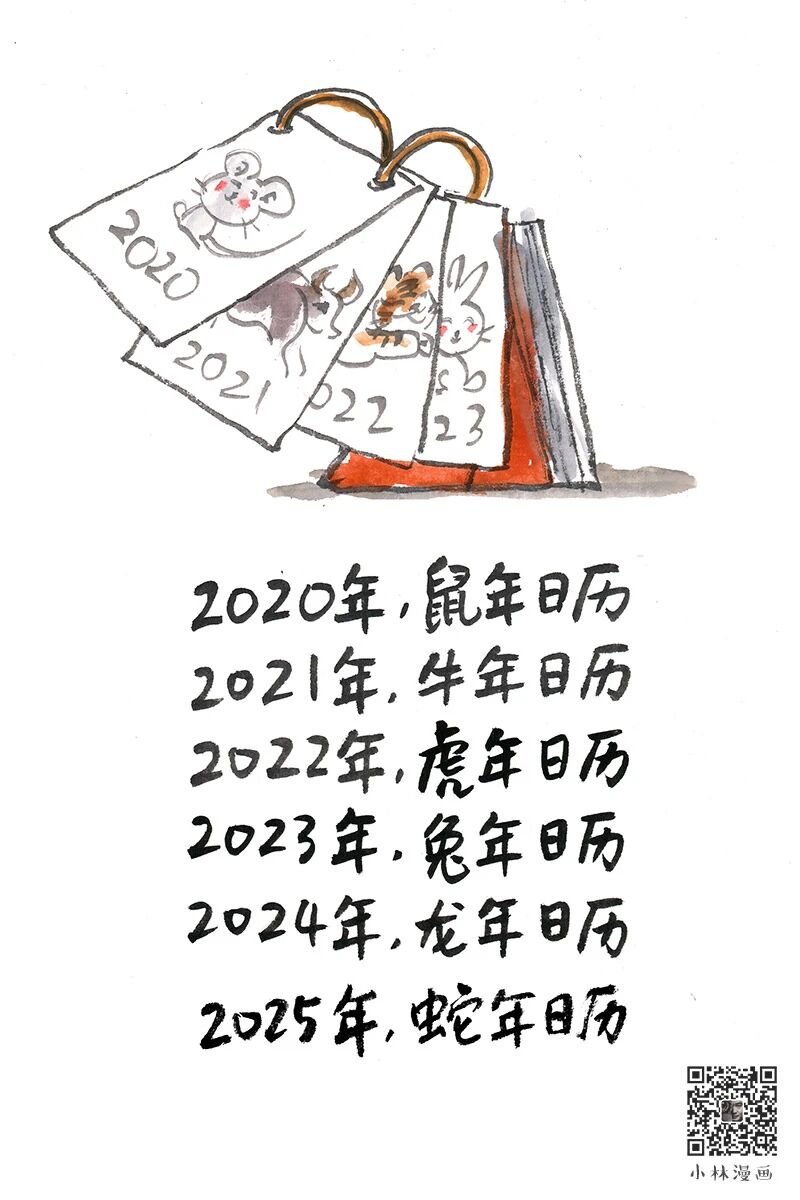 2020
2021
022
sb
23
2020年,鼠年日历
2021年,牛年日历
2022年,虎年日历
2023年,兔年日历
2024年,龙年日历
2025年,蛇年日历
小林漫画